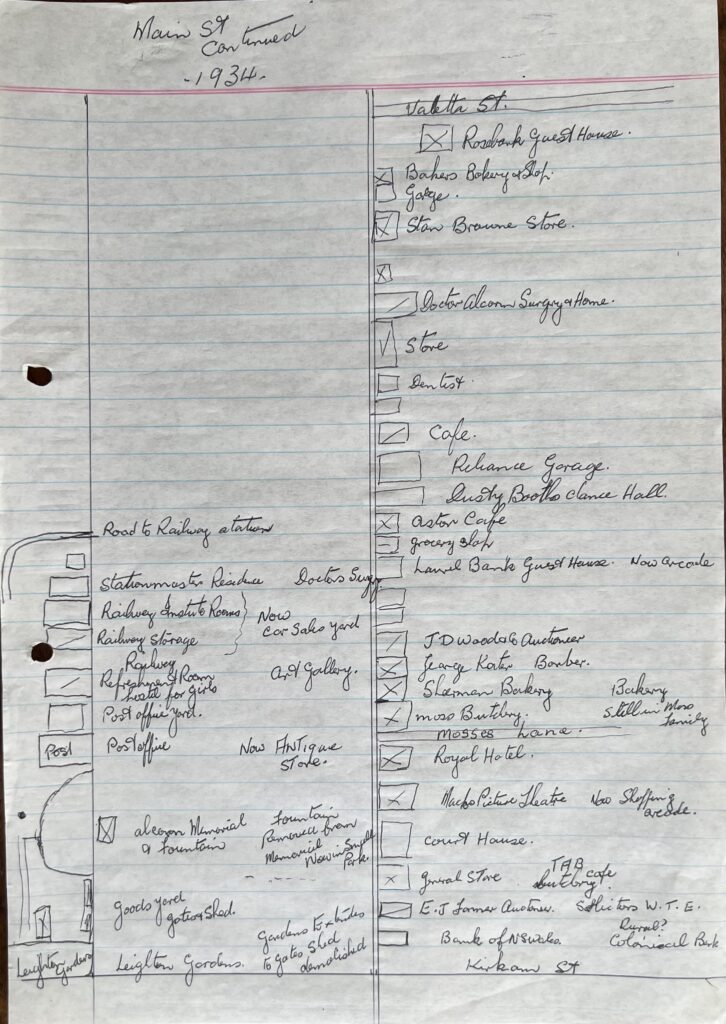 Main St
Continued
-1934-
Valetta St.
Rosebank Guest House.
Bakers Bakery & Shop.
Garge.
Stan Browne Store.
Doctor Alcorn Surgery & Home.
Store
Dentist.
Cafe.
Reliance Garage.
Dusty Booths dance Hall.
Aston Cafe
grocery shop
Laurel Bank Guest House. Now arcade
J D Woods & Auctioneer
George Kater Barber.
Sherman Bakery Bakery
Moss Butchery. Still in Moss
family
Mosses Lane.
Royal Hotel.
Macks Picture Theatre Now Shopping
arcade.
Court House.
general Store TAB cafe
butchery?
E.J Auctioneer. Solicitors W.T.E.
Rural?
Bank of NSWales Colonial Bank
Kirkham St
Road to Railway station
Stationmaster Residence Doctors Surgy.
Railway Institute Rooms
Now
Car Sales yard
Railway Storage
Railway
Refreshment Room
hostel for girls
Art Gallery.
Post office yard.
Post
Post office Now ANTique
Store.
alcorn Memorial
& Fountain
Fountain
Removed from
Memorial
Now in
Park.
goods yard
gates & Shed.
Gardens Extends
To Gates Shed
demolished
Leighton
Gardens
Leighton Gardens.